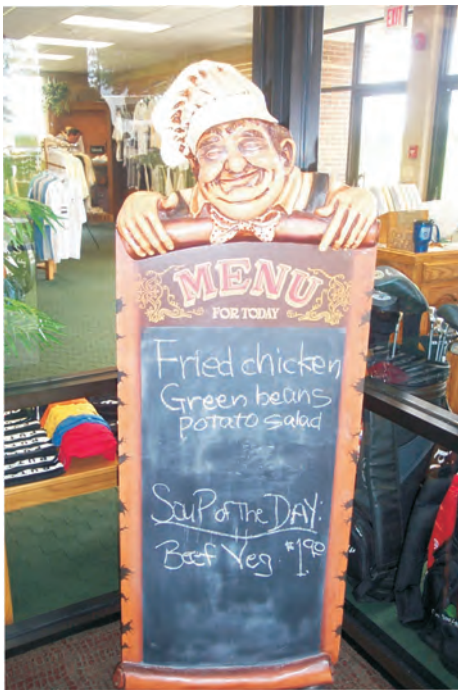 EXIT
MENU
FOR TODAY
Fried chicken
Green beans
potato salad
Soup of The DAY:
Beef Veg. $1.90